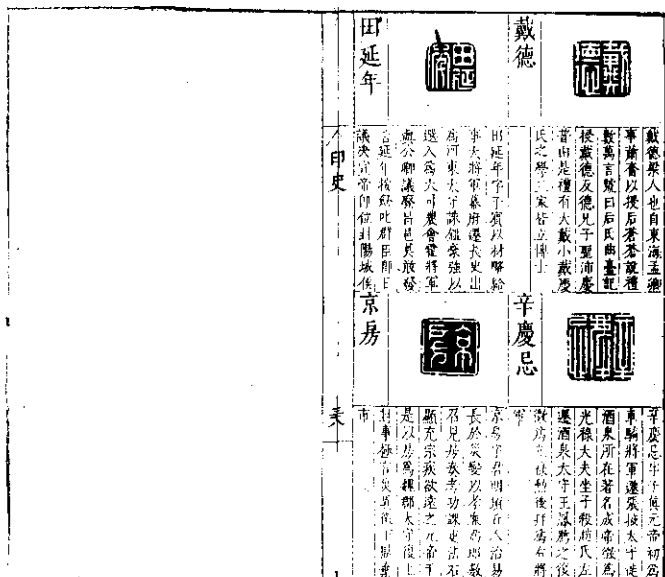 戴德
戴德梁人也自東海孟卿
事蕭奮以授后蒼蒼說禮
數萬言號曰后氏曲臺記
授戴德及德兄子聖沛慶
普由是禮有大戴小戴慶
氏之學三家皆立博士
田延年
田延年字子賓以材略給
事大將軍幕府遷長史出
為河東太守誅鉏豪強以
選入為大司農會霍將軍
與公卿議廢昌邑莫敢發
言延年按劍叱群臣即日
議決宣帝即位封陽城侯
辛慶忌
辛慶忌字子真元帝初為
車騎將軍遷張掖太守徙
酒泉所在著名成帝徵為
光祿大夫坐子殺趙氏左
遷酒泉太守王鳳薦之後
徵為
後拜為右將
軍
京房
京房字君明頓丘人治易
長於災變以孝廉為郎數
召見房奏考功課吏法石
顯充宗疾欲遠之元帝于
是以房為魏郡太守後上
封事
市
印史